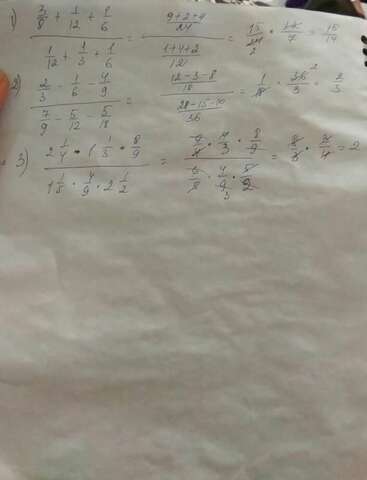 1) (3/8 + 1/12 + 1/6) / (1/12 + 1/3 + 1/6) = ((9+2+4)/24) / ((1+4+2)/12) = 15/24 2 · 12/7 = 15/14
2) (2/3 - 1/6 - 4/9) / (7/9 - 5/12 - 5/18) = ((12-3-8)/18) / ((28-15-10)/36) = 1/18 · 36/3 2 = 2/3
3) (2 1/4 · 1 1/3 · 8/9) / (1 1/8 · 4/9 · 2 1/2) = (9/4 · 4/3 · 8/9) / (9/8 · 4/9 · 5/2) = 8/3 · = 2